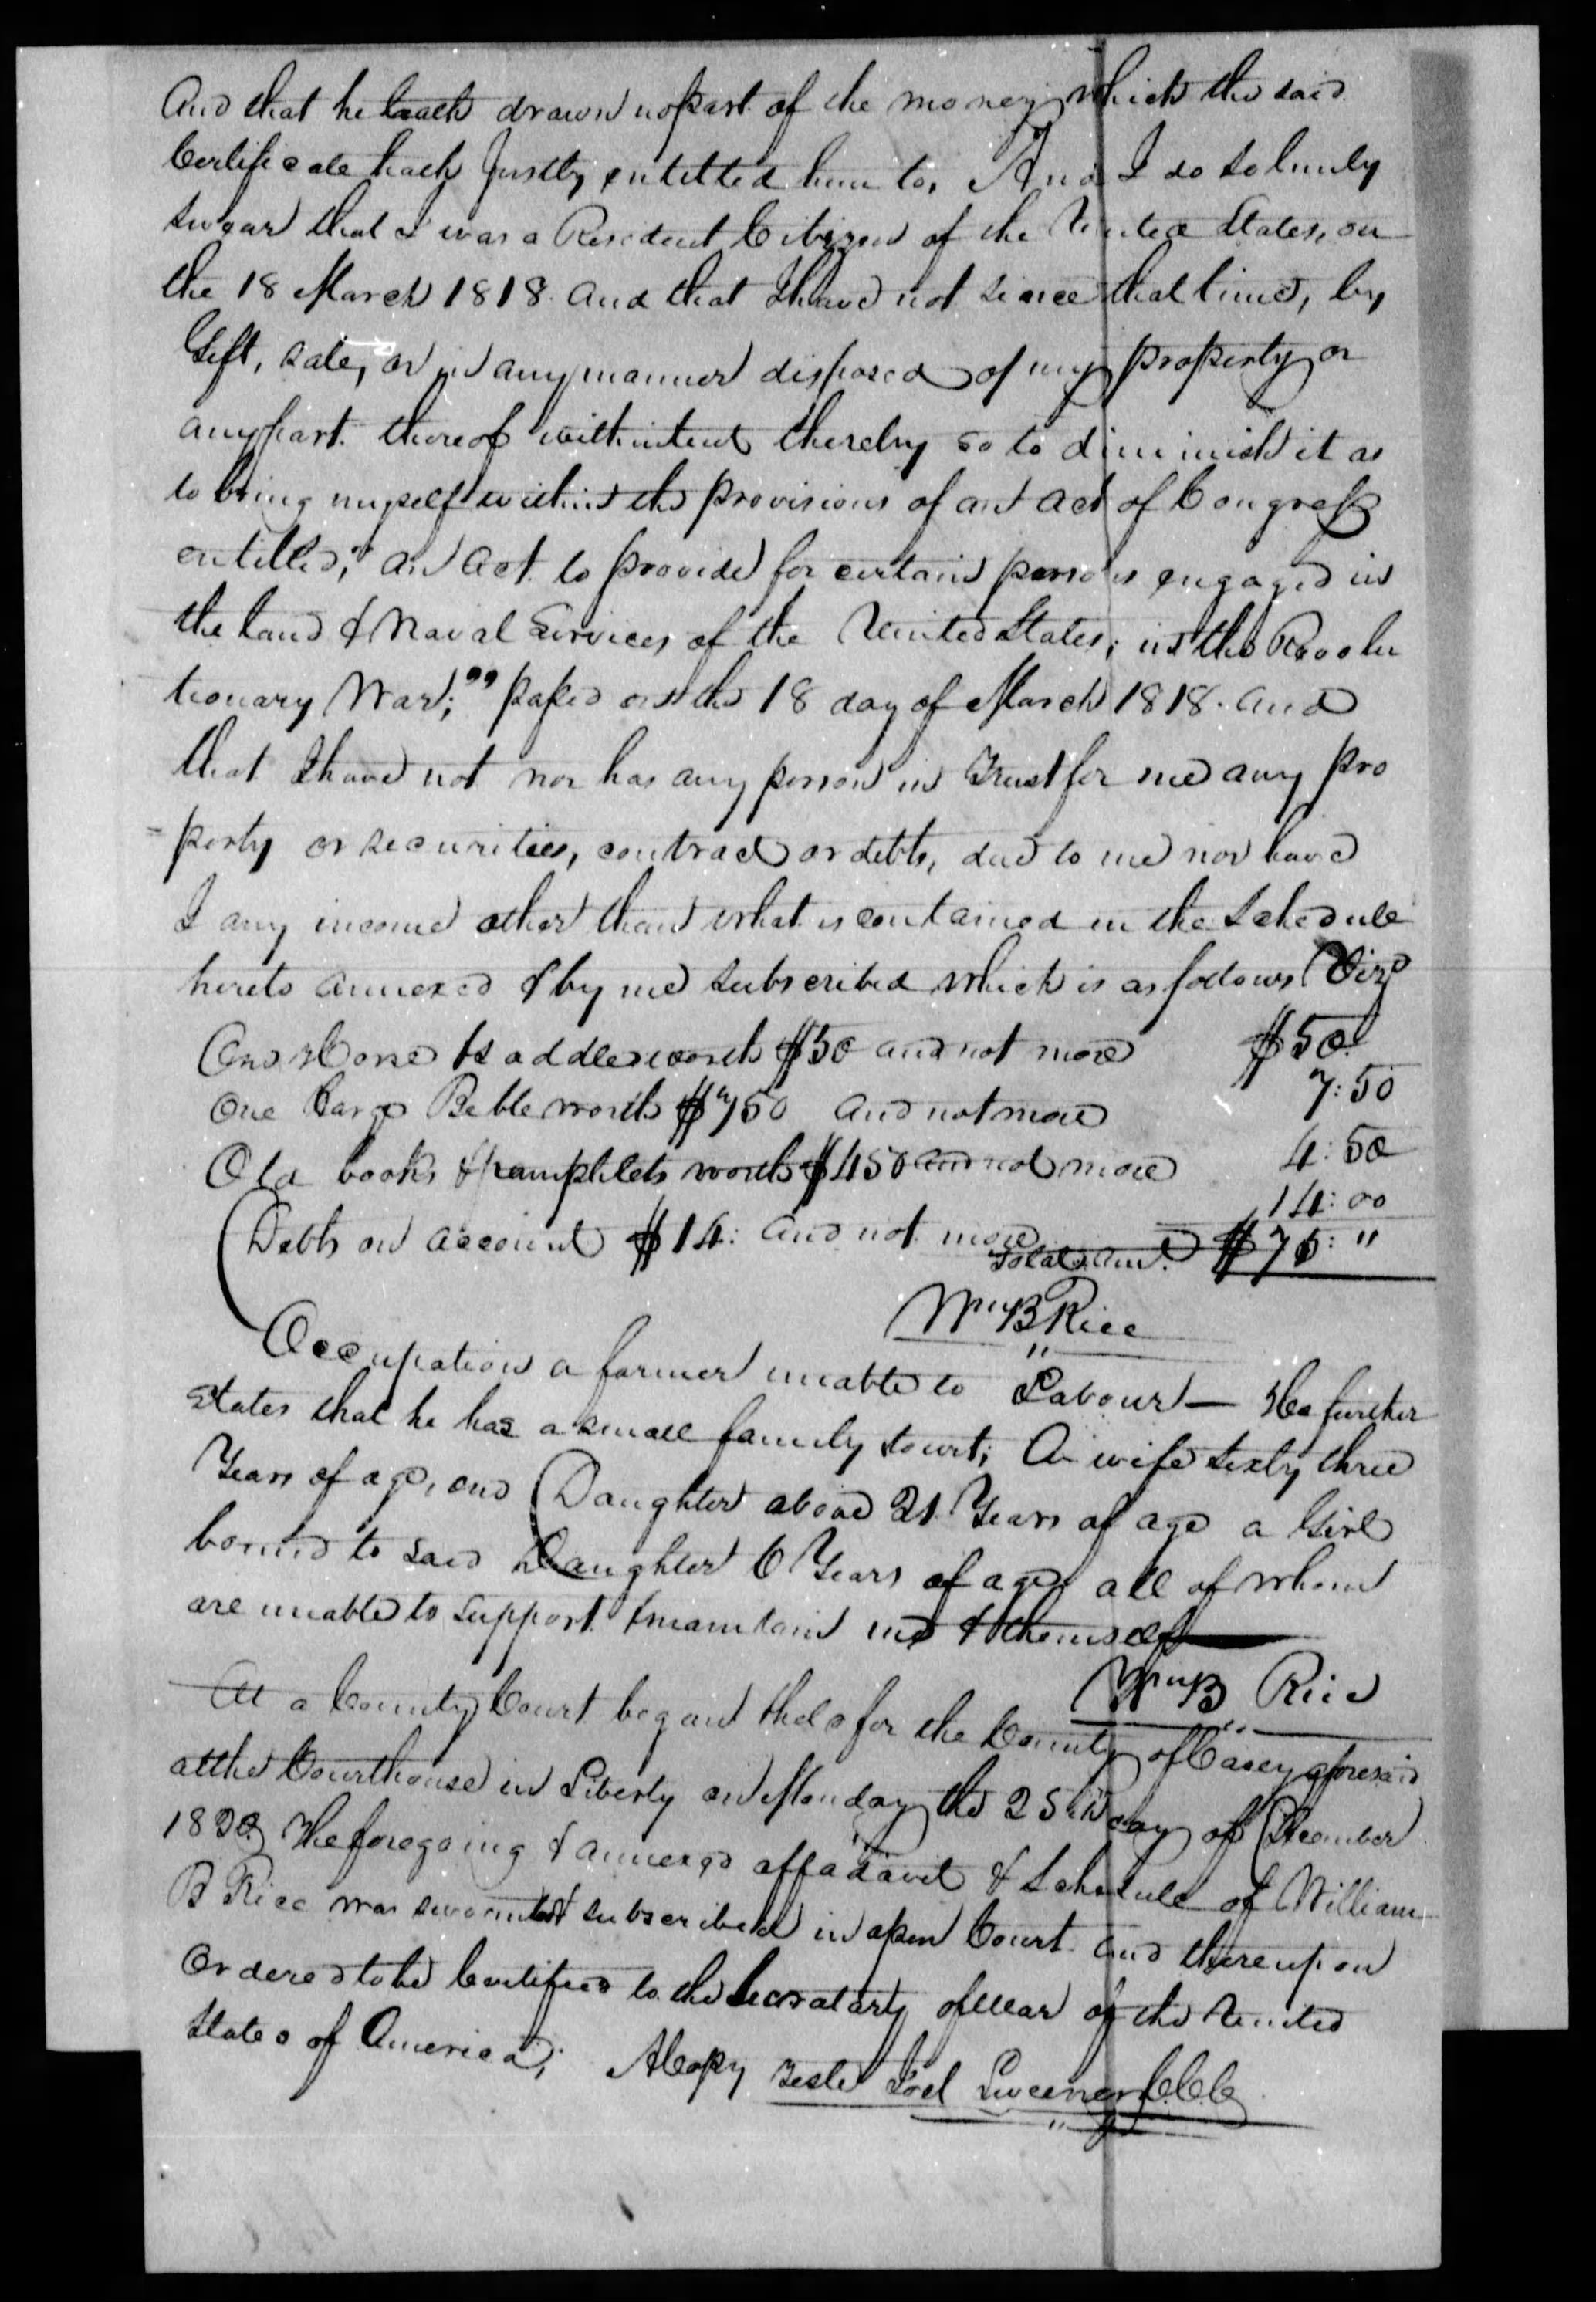 And that he hath drawn no part of the money which the said
Certificate hath Justly entitled him to, And I do Solimnly
Swear that I was a Resident Citizen of the United States, on
the 18 March 1818. and that I have not since that time, by
Gift, sale, or in any manner disposed of my property or
any part thereof with intent thereby so to diminish it as
to bring myself within the provisions of an act of Congress
entitled, "an act to provide for certain persons engaged in
the land & Naval Services of the United States; in the Revolu
tionary War;" passed on the 18 day of March 1818. and
that I have not nor has any person in Trust for me any pro
-perty or securities, contract or debts, due to me nor have
I any income other than what is contained in the Schedule
hereto annexed & by me subscribed which is as follows (Viz)
One Horse & saddle worth $50 and not more $50
One Large Bible worth $7 50 and not more 7:50
Old books & pamphlets worth $4 50 and not more 4:50
Debts on account $14: and not more 14:00
Total amt. $76: "
Wm B Rice
Occupation a farmer unable to Labour — He further
States that he has a small family to wit; A wife sixty three
Years of age, one Daughter above 21 Years of age a Girl
bound to said Daughter 6 Years of age all of whom
are unable to support & maintain me & themself
Wm B Rice
At a County Court began & held for the County of Casey aforesaid
at the Courthouse in Liberty on Monday the 25th day of December
1820 The foregoing & annexed affadavit & Schedule of William
B Rice was sworn to & subscribed in open Court and thereupon
Ordered to be Certified to the Secratary of War of the United
States of America; A Copy Teste Joel Sweeney C.C.C.